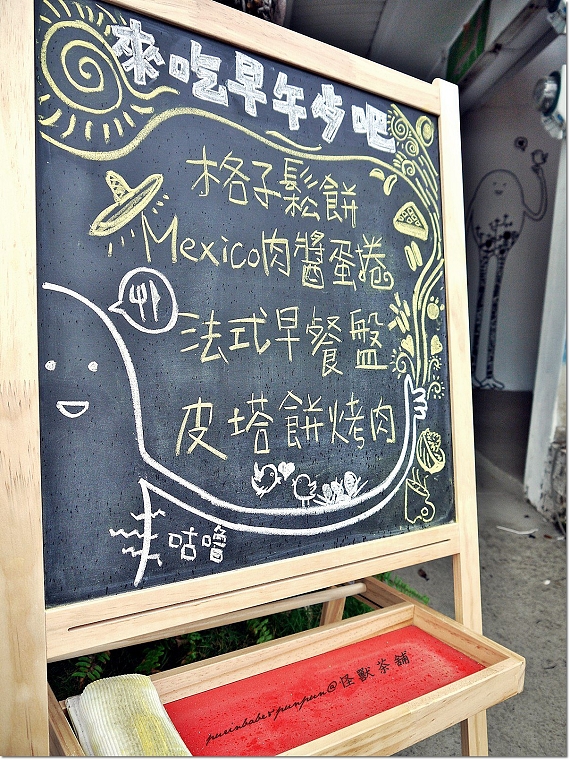 來吃早午歺吧
格子鬆餅
Mexico肉醬蛋捲
法式早餐盤
皮塔餅烤肉
咕嚕
pureenbabe&punpun@怪獸茶舖